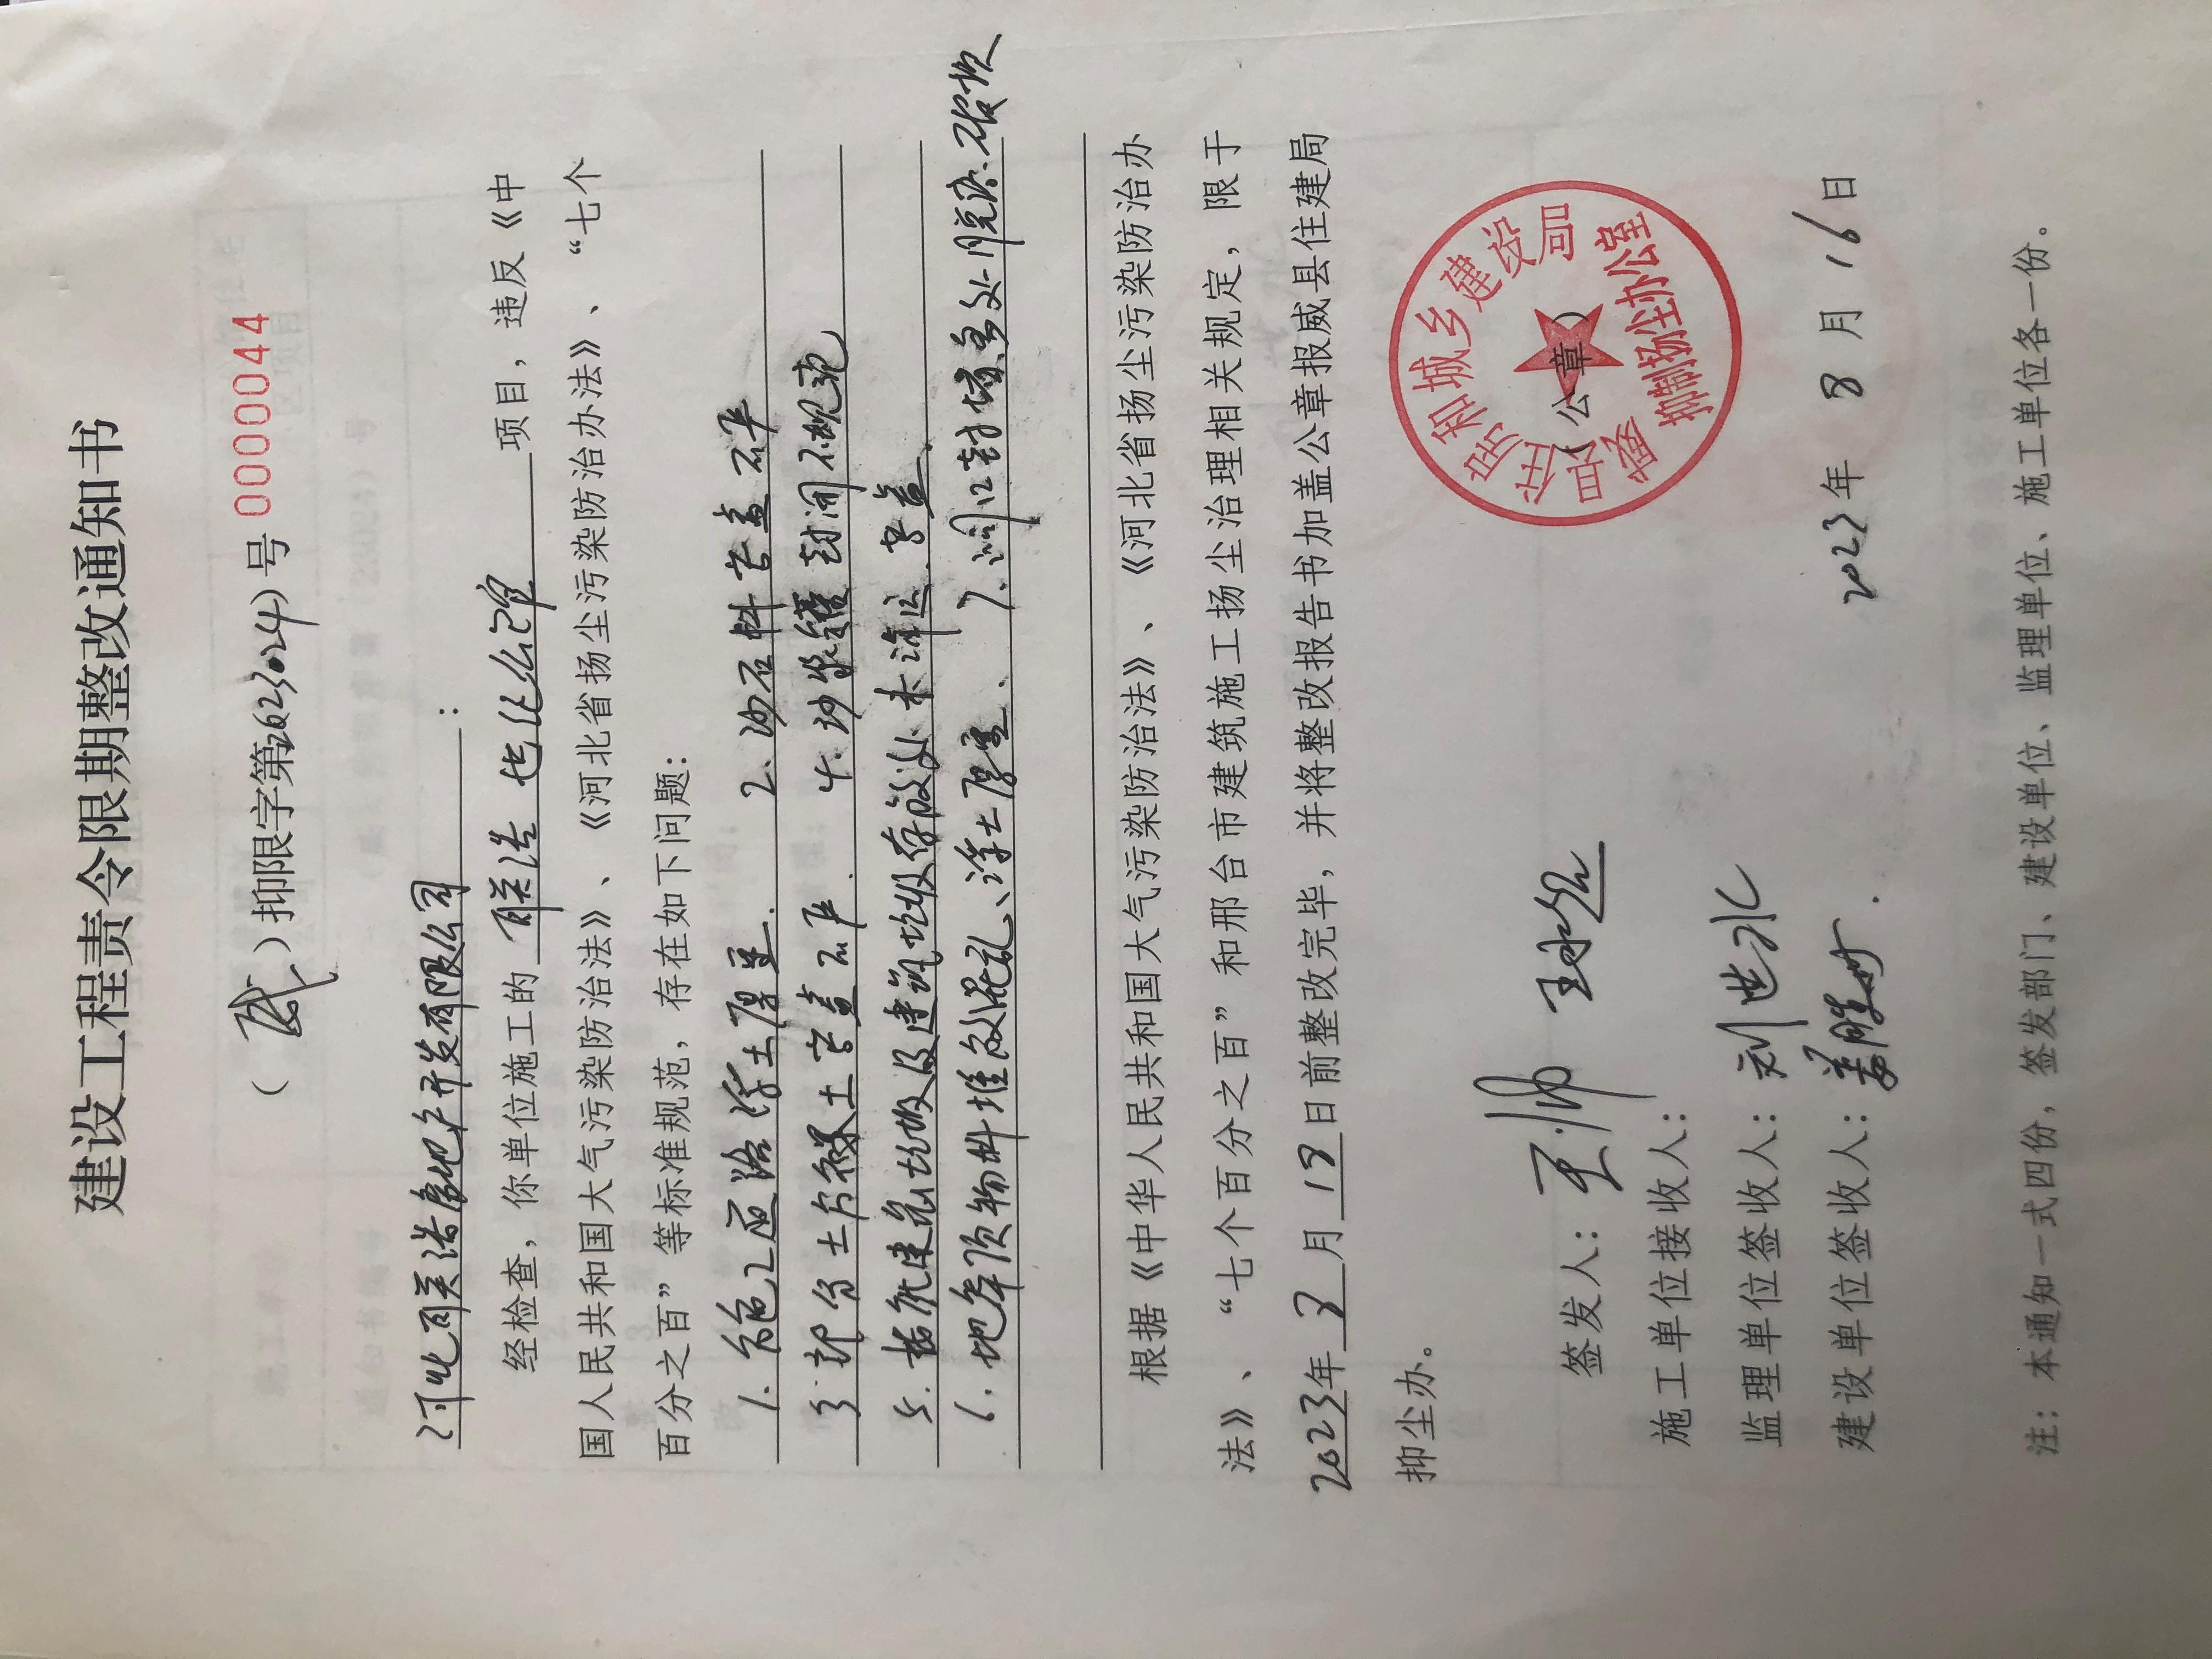 建设工程责令限期整改通知书
（威）抑限字第(2023024)号 0000044
河北联浩房地产开发有限公司：
经检查，你单位施工的 联浩 项目，违反《中
国人民共和国大气污染防治法》、《河北省扬尘污染防治办法》、“七个
百分之百”等标准规范，存在如下问题：
1. 施工道路浮土厚重. 2. 沙石料苫盖不严
3. 部分土方裸土苫盖不严. 4. 砂浆罐封闭不规范
5. 垃圾及建筑垃圾存放处未 苫盖.
6. 地库顶物料堆放混乱、浮土厚重、 7. 洞口封堵多处 破损
根据《中华人民共和国大气污染防治法》、《河北省扬尘污染防治办
法》、“七个百分之百”和邢台市建筑施工扬尘治理相关规定，限于
2023年8月19日前整改完毕，并将整改报告书加盖公章报威县住建局
抑尘办。
签发人：王帅
施工单位接收人：
监理单位签收人：刘世北
建设单位签收人：姜胜
威县住房和城乡建设局
（公章）
抑制扬尘办公室
2023年 8 月 16日
注：本通知一式四份，签发部门、建设单位、监理单位、施工单位各一份。